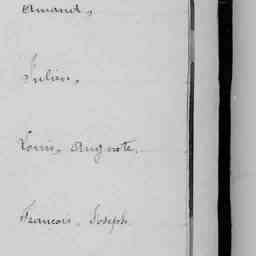 Amand,
Julien,
Louis, Auguste,
Francois, Joseph